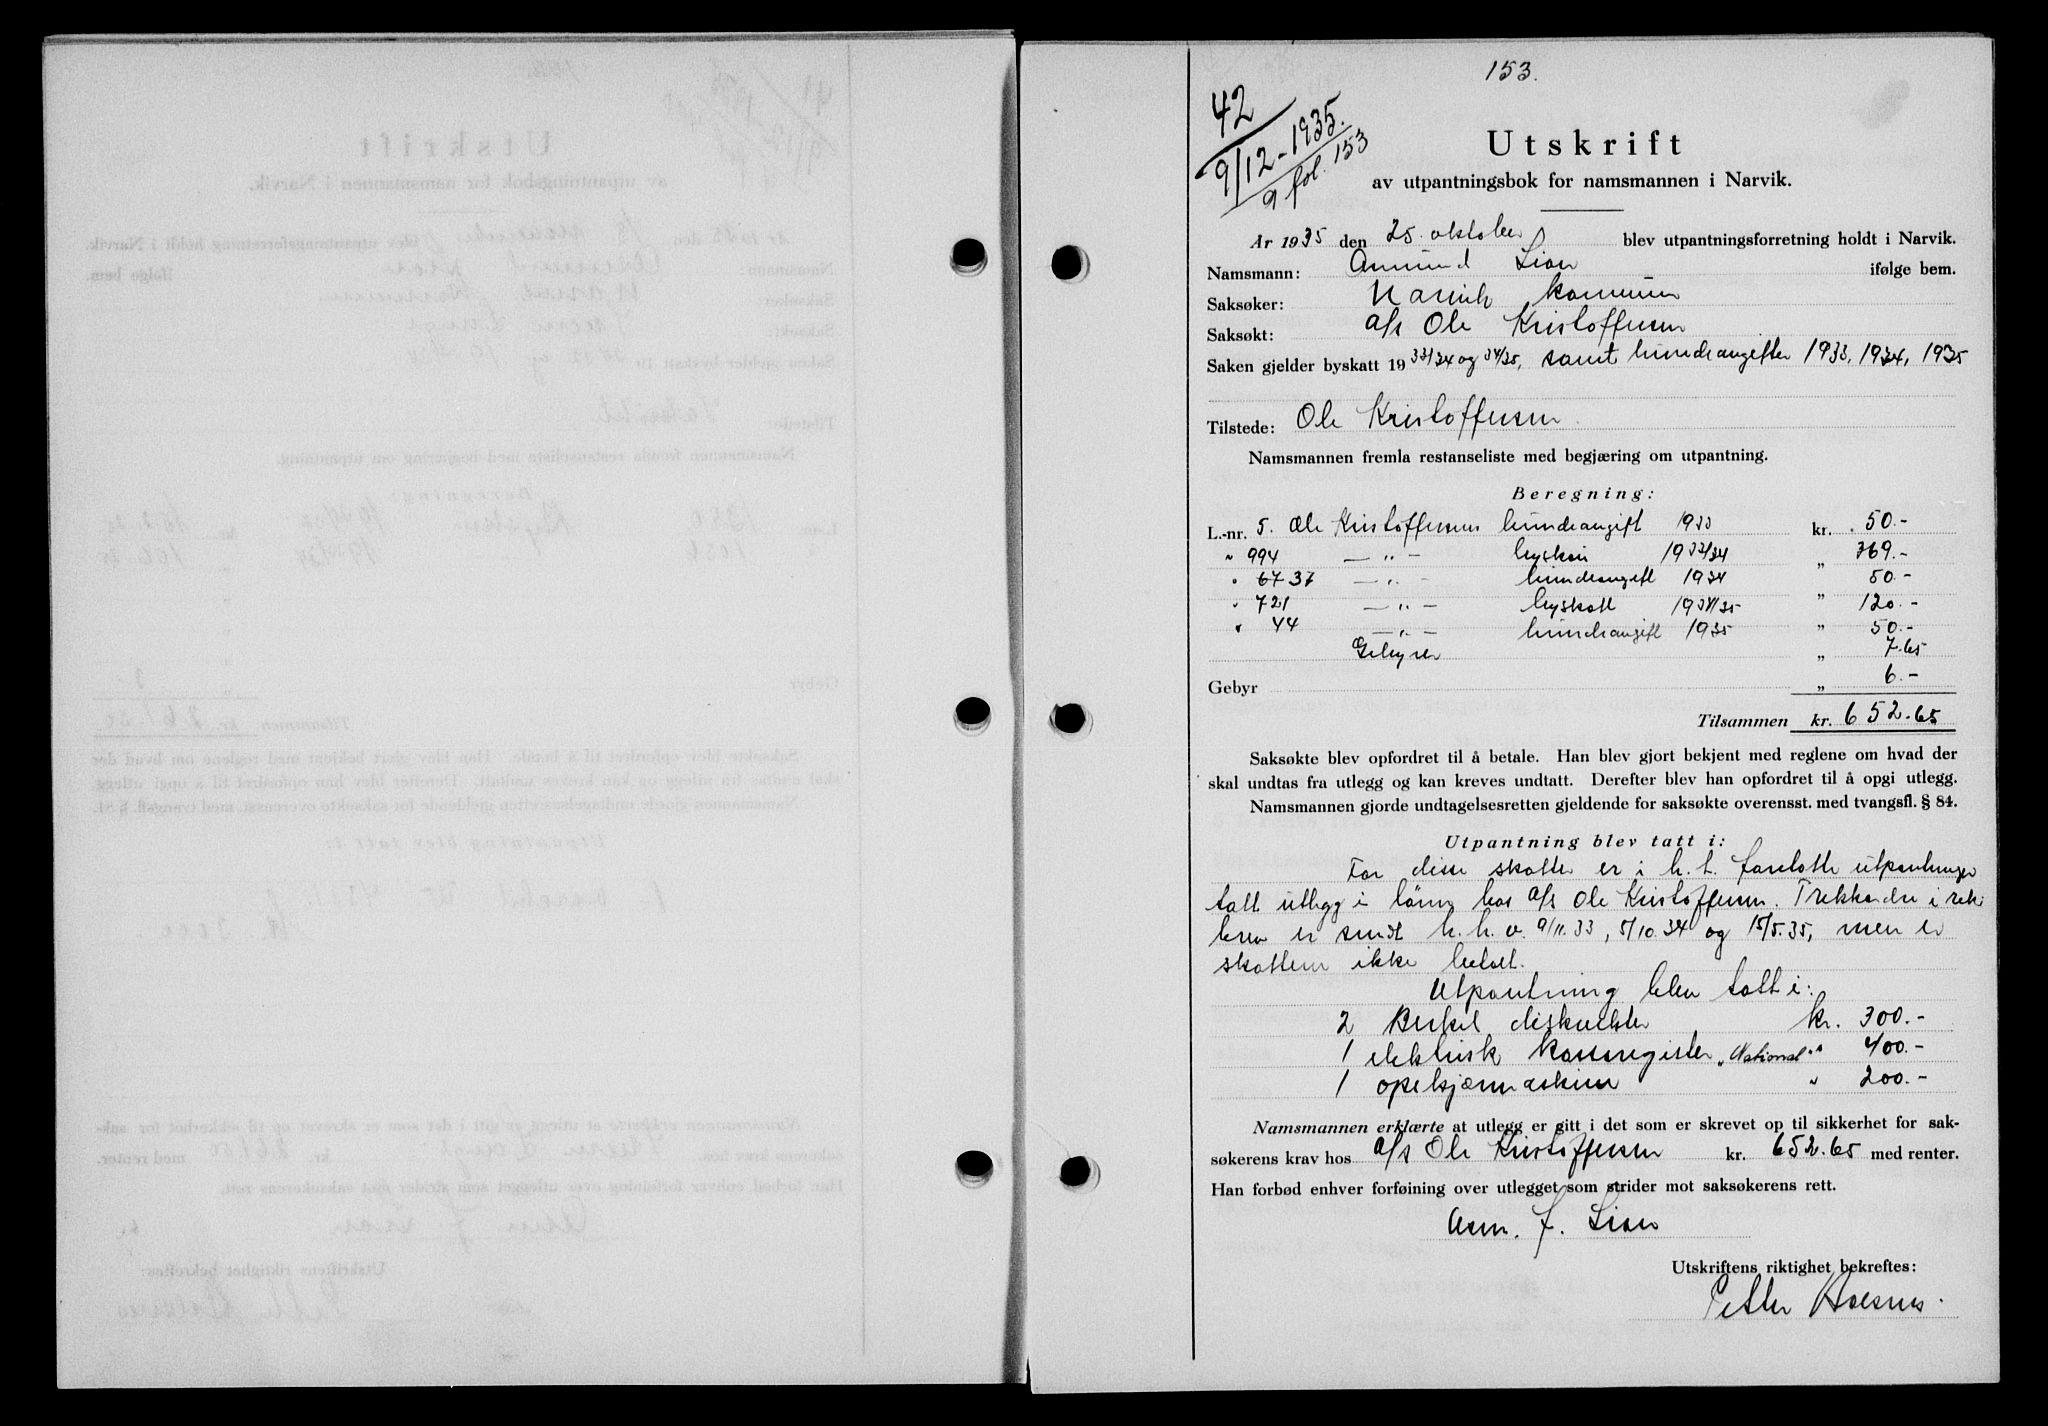 153.
42
9/12-1935.
9 fol. 153
Utskrift
av utpantningsbok for namsmannen i Narvik.
År 1935 den 25. oktober blev utpantningsforretning holdt i Narvik.
Namsmann: Asmund Lian ifølge bem.
Saksøker: Narvik kommune
Saksøkt: A/s Ole Kristoffersen
Saken gjelder byskatt 1933/34 og 34/35, samt hundeavgifter 1933, 1934, 1935
Tilstede: Ole Kristoffersen.
Namsmannen fremla restanseliste med begjæring om utpantning.
Beregning:
L.-nr. 5. Ole Kristoffersens hundeavgift 1933 kr. 50.-
" 994 — " — byskatt 1933/34 " 369.-
" 6737 — " — hundeavgift 1934 50.-
" 721 — " — byskatt 1934/35 " 120.-
" 44 — " — hundeavgift 1935 " 50.-
Gebyrer " 7.65
Gebyr " 6.-
Tilsammen kr. 652.65
Saksøkte blev opfordret til å betale. Han blev gjort bekjent med reglene om hvad der
skal undtas fra utlegg og kan kreves undtatt. Derefter blev han opfordret til å opgi utlegg.
Namsmannen gjorde undtagelsesretten gjeldende for saksøkte overensst. med tvangsfl. § 84.
Utpantning blev tatt i:
For disse skatter er i h. t. foretatte utpantninger
tatt utlegg i lønn hos A/s Ole Kristoffersen. Trekkordre i rek.
brev er sendt h. h. v. 9/11.33, 5/10.34 og 15/5.35, men er
skatten ikke betalt.
Utpantning blev tatt i:
2 Berkel diskvekter kr. 300.-
1 elektrisk kassaregister "National" " 400.-
1 opskjærmaskin " 200.-
Namsmannen erklærte at utlegg er gitt i det som er skrevet op til sikkerhet for sak-
søkerens krav hos A/s Ole Kristoffersen kr. 652.65 med renter.
Han forbød enhver forføining over utlegget som strider mot saksøkerens rett.
Asm. J. Lian
Utskriftens riktighet bekreftes:
Petter